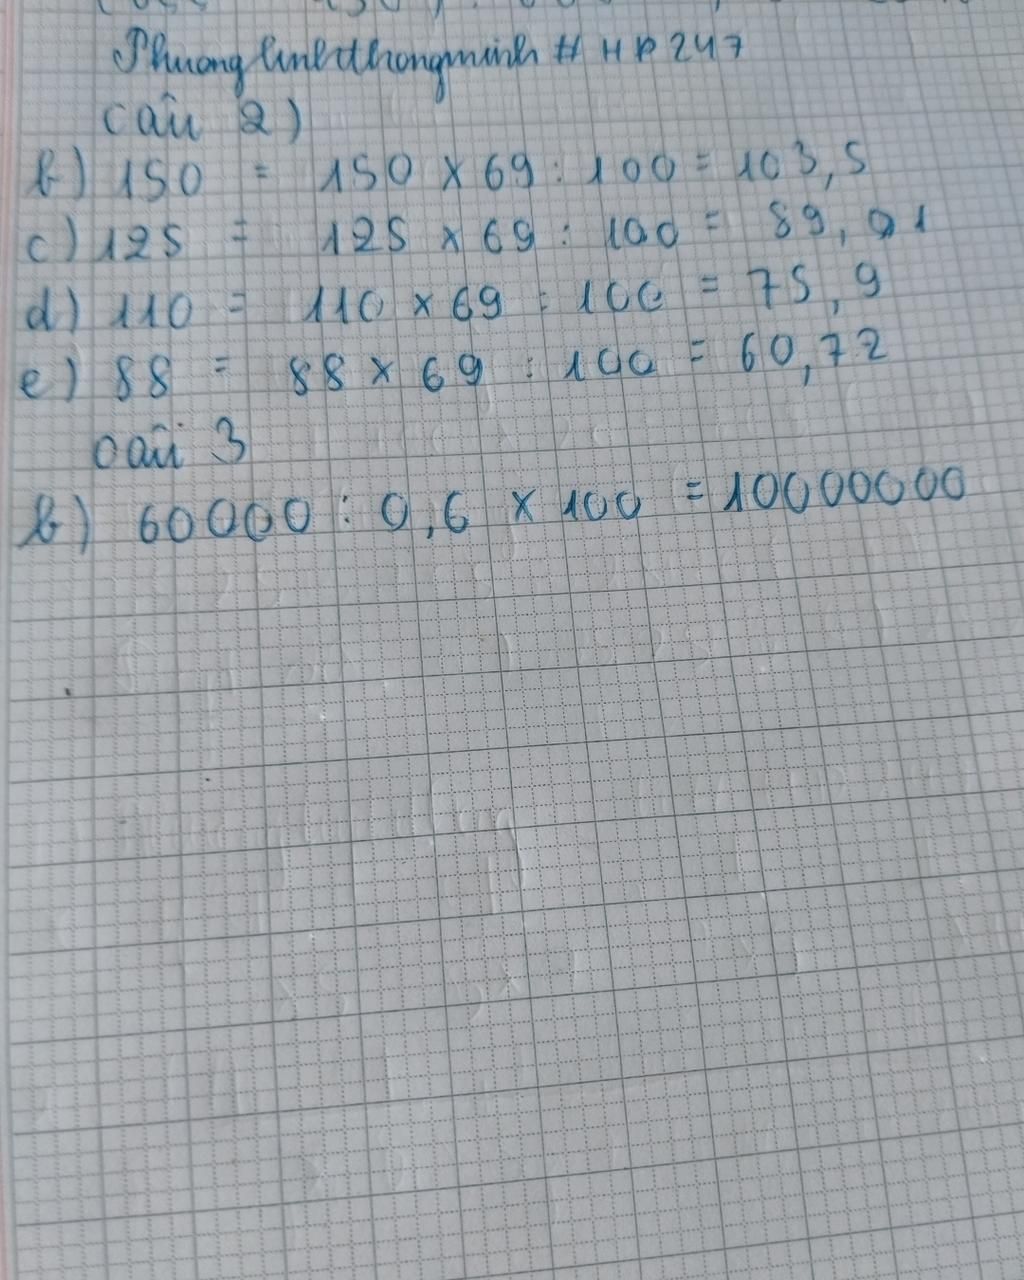 Phuonglinhthongminh # HP247
Câu 2)
b) 150 = 150 x 69 : 100 = 103,5
c) 125 = 125 x 69 : 100 = 89,01
d) 110 = 110 x 69 : 100 = 75,9
e) 88 = 88 x 69 : 100 = 60,72
Câu 3
b) 60000 : 0,6 x 100 = 10000000